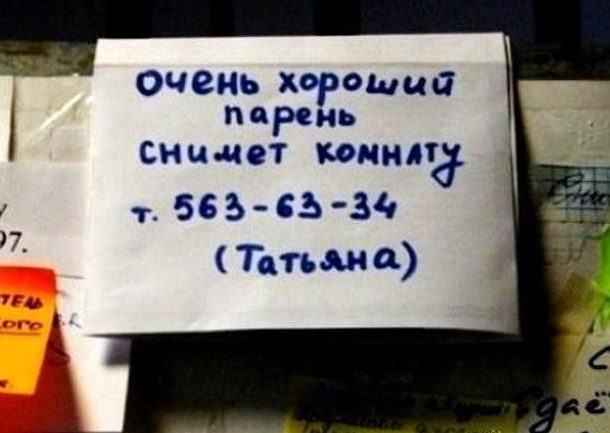 очень хороший
парень
снимет комнату
т. 563-63-34
(Татьяна)
97.
даё